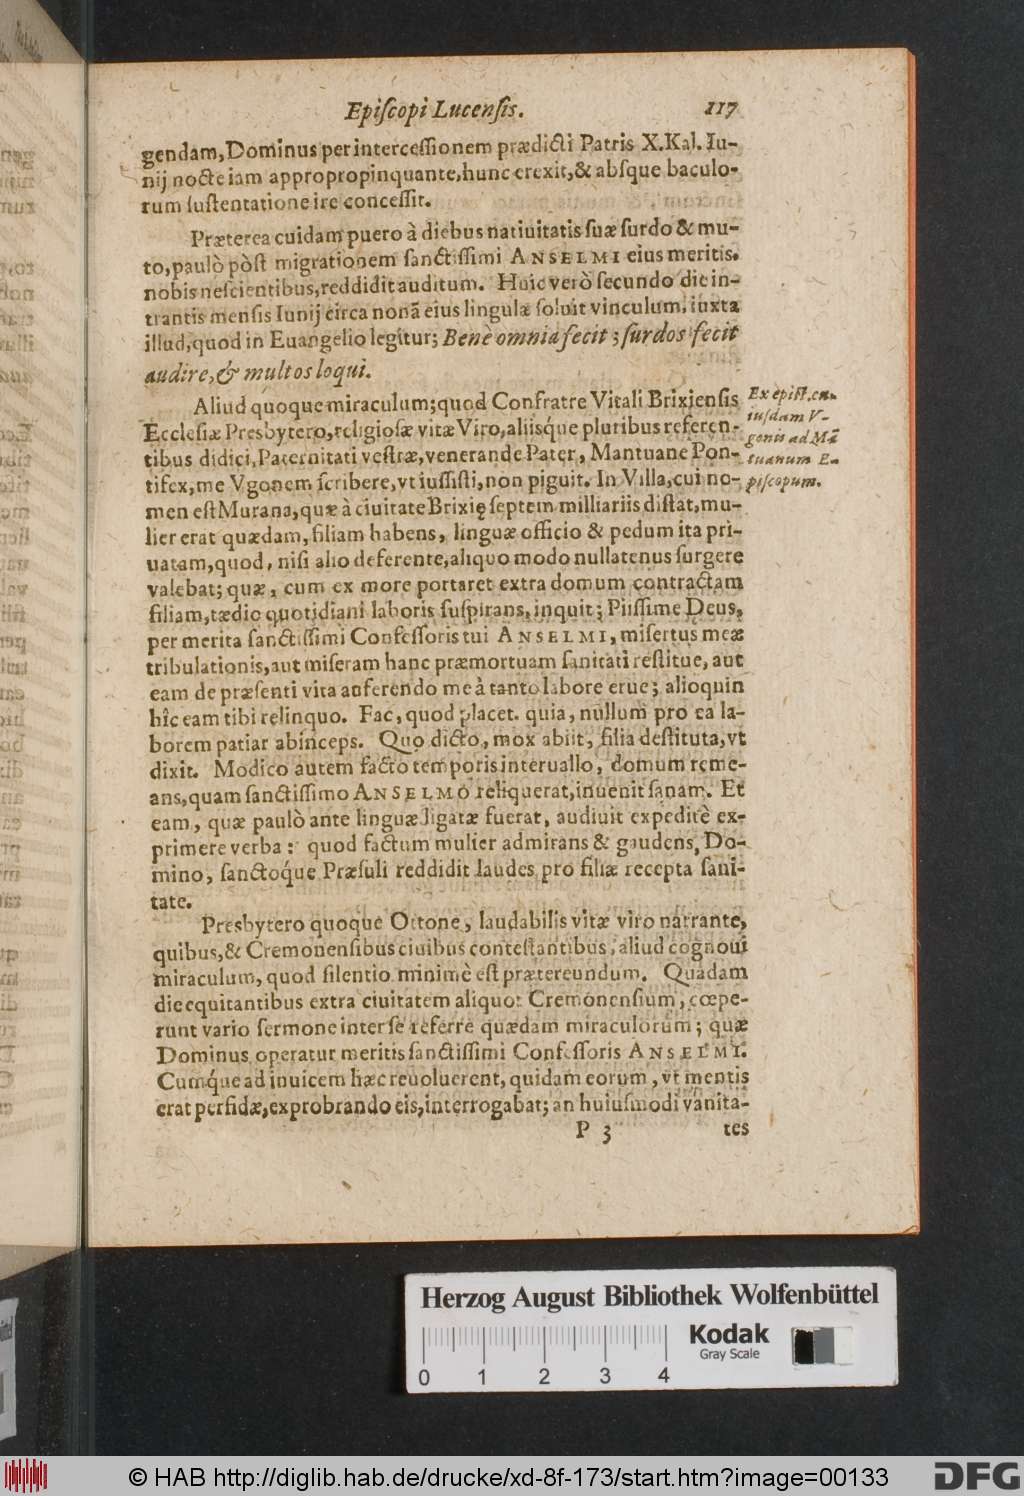 Epiſcopi Lucenſis. 117
gendam, Dominus per interceſſionem prædicti Patris X. Kal. Iu-
nij nocte iam appropropinquante, hunc erexit, & abſque baculo-
rum ſuſtentatione ire conceſſit.
Præterea cuidam puero à diebus natiuitatis ſuæ ſurdo & mu-
to, paulò pòſt migrationem ſanctiſſimi ANSELMI eius meritis.
nobis neſcientibus, reddidit auditum. Huic verò ſecundo die in-
trantis menſis Iunij circa nonā eius lingulæ ſoluit vinculum, iuxta
illud, quod in Euangelio legitur; Benè omnia fecit; ſurdos fecit
audire, & multos loqui.
Aliud quoque miraculum; quod Confratre Vitali Brixienſis
Eccleſiæ Presbytero, religioſæ vitæ Viro, aliisq́ue pluribus referen-
tibus didici, Paternitati veſtræ, venerande Pater, Mantuane Pon-
tifex, me Vgonem ſcribere, vt iuſſiſti, non piguit. In Villa, cui no-
men eſt Murana, quæ à ciuitate Brixię ſeptem milliariis diſtat, mu-
lier erat quædam, filiam habens, linguæ officio & pedum ita pri-
uatam, quod, niſi alio deferente, aliquo modo nullatenus ſurgere
valebat; quæ, cum ex more portaret extra domum contractam
filiam, tædio quotidiani laboris ſuſpirans, inquit; Piiſſime Deus,
per merita ſanctiſſimi Confeſſoris tui ANSELMI, miſertus meæ
tribulationis, aut miſeram hanc præmortuam ſanitati reſtitue, aut
eam de præſenti vita auferendo me à tanto labore erue; alioquin
hîc eam tibi relinquo. Fac, quod placet. quia, nullum pro ea la-
borem patiar abinceps. Quo dicto, mox abiit, filia deſtituta, vt
dixit. Modico autem facto temporis interuallo, domum reme-
ans, quam ſanctiſſimo ANSELMO reliquerat, inuenit ſanam. Et
eam, quæ paulò ante linguæ ligatæ fuerat, audiuit expeditè ex-
primere verba: quod factum mulier admirans & gaudens, Do-
mino, ſanctoq́ue Præſuli reddidit laudes pro filiæ recepta ſani-
tate.
Presbytero quoque Ottone, laudabilis vitæ viro narrante,
quibus, & Cremonenſibus ciuibus conteſtantibus, aliud cognoui
miraculum, quod ſilentio minimè eſt prætereundum. Quadam
die equitantibus extra ciuitatem aliquot Cremonenſium, cœpe-
runt vario ſermone inter ſe referre quædam miraculorum; quæ
Dominus operatur meritis ſanctiſſimi Confeſſoris ANSELMI.
Cumq́ue ad inuicem hæc reuoluerent, quidam eorum, vt mentis
erat perfidæ, exprobrando eis, interrogabat; an huiuſmodi vanita-
P 3 tes
Ex epiſt. eu-
iuſdam V-
gonis ad Mā
tuanum E-
piſcopum.
Herzog August Bibliothek Wolfenbüttel
Kodak
Gray Scale
0 1 2 3 4
© HAB http://diglib.hab.de/drucke/xd-8f-173/start.htm?image=00133
DFG